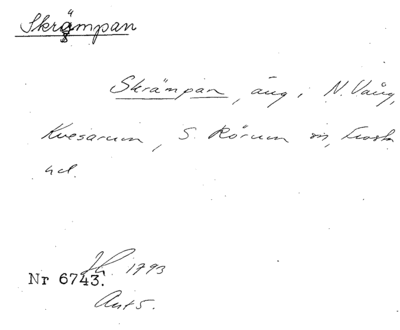 Skrämpan
Skrämpan, äng i N. Vång,
Kvesarum, S. Rörum sn, Frosta
hd.
Nr 6743. 1793
Ant 5.